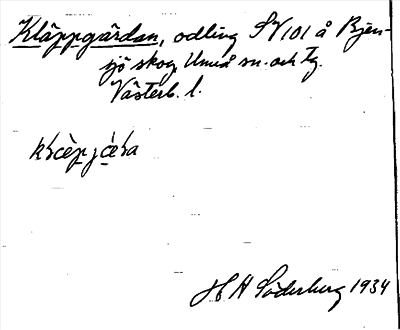 Kläppgärdan, odling SV 101 å Bjen-
sjö skog Umeå sn. och tg.
Västerb. l.
H A Söderberg 1934